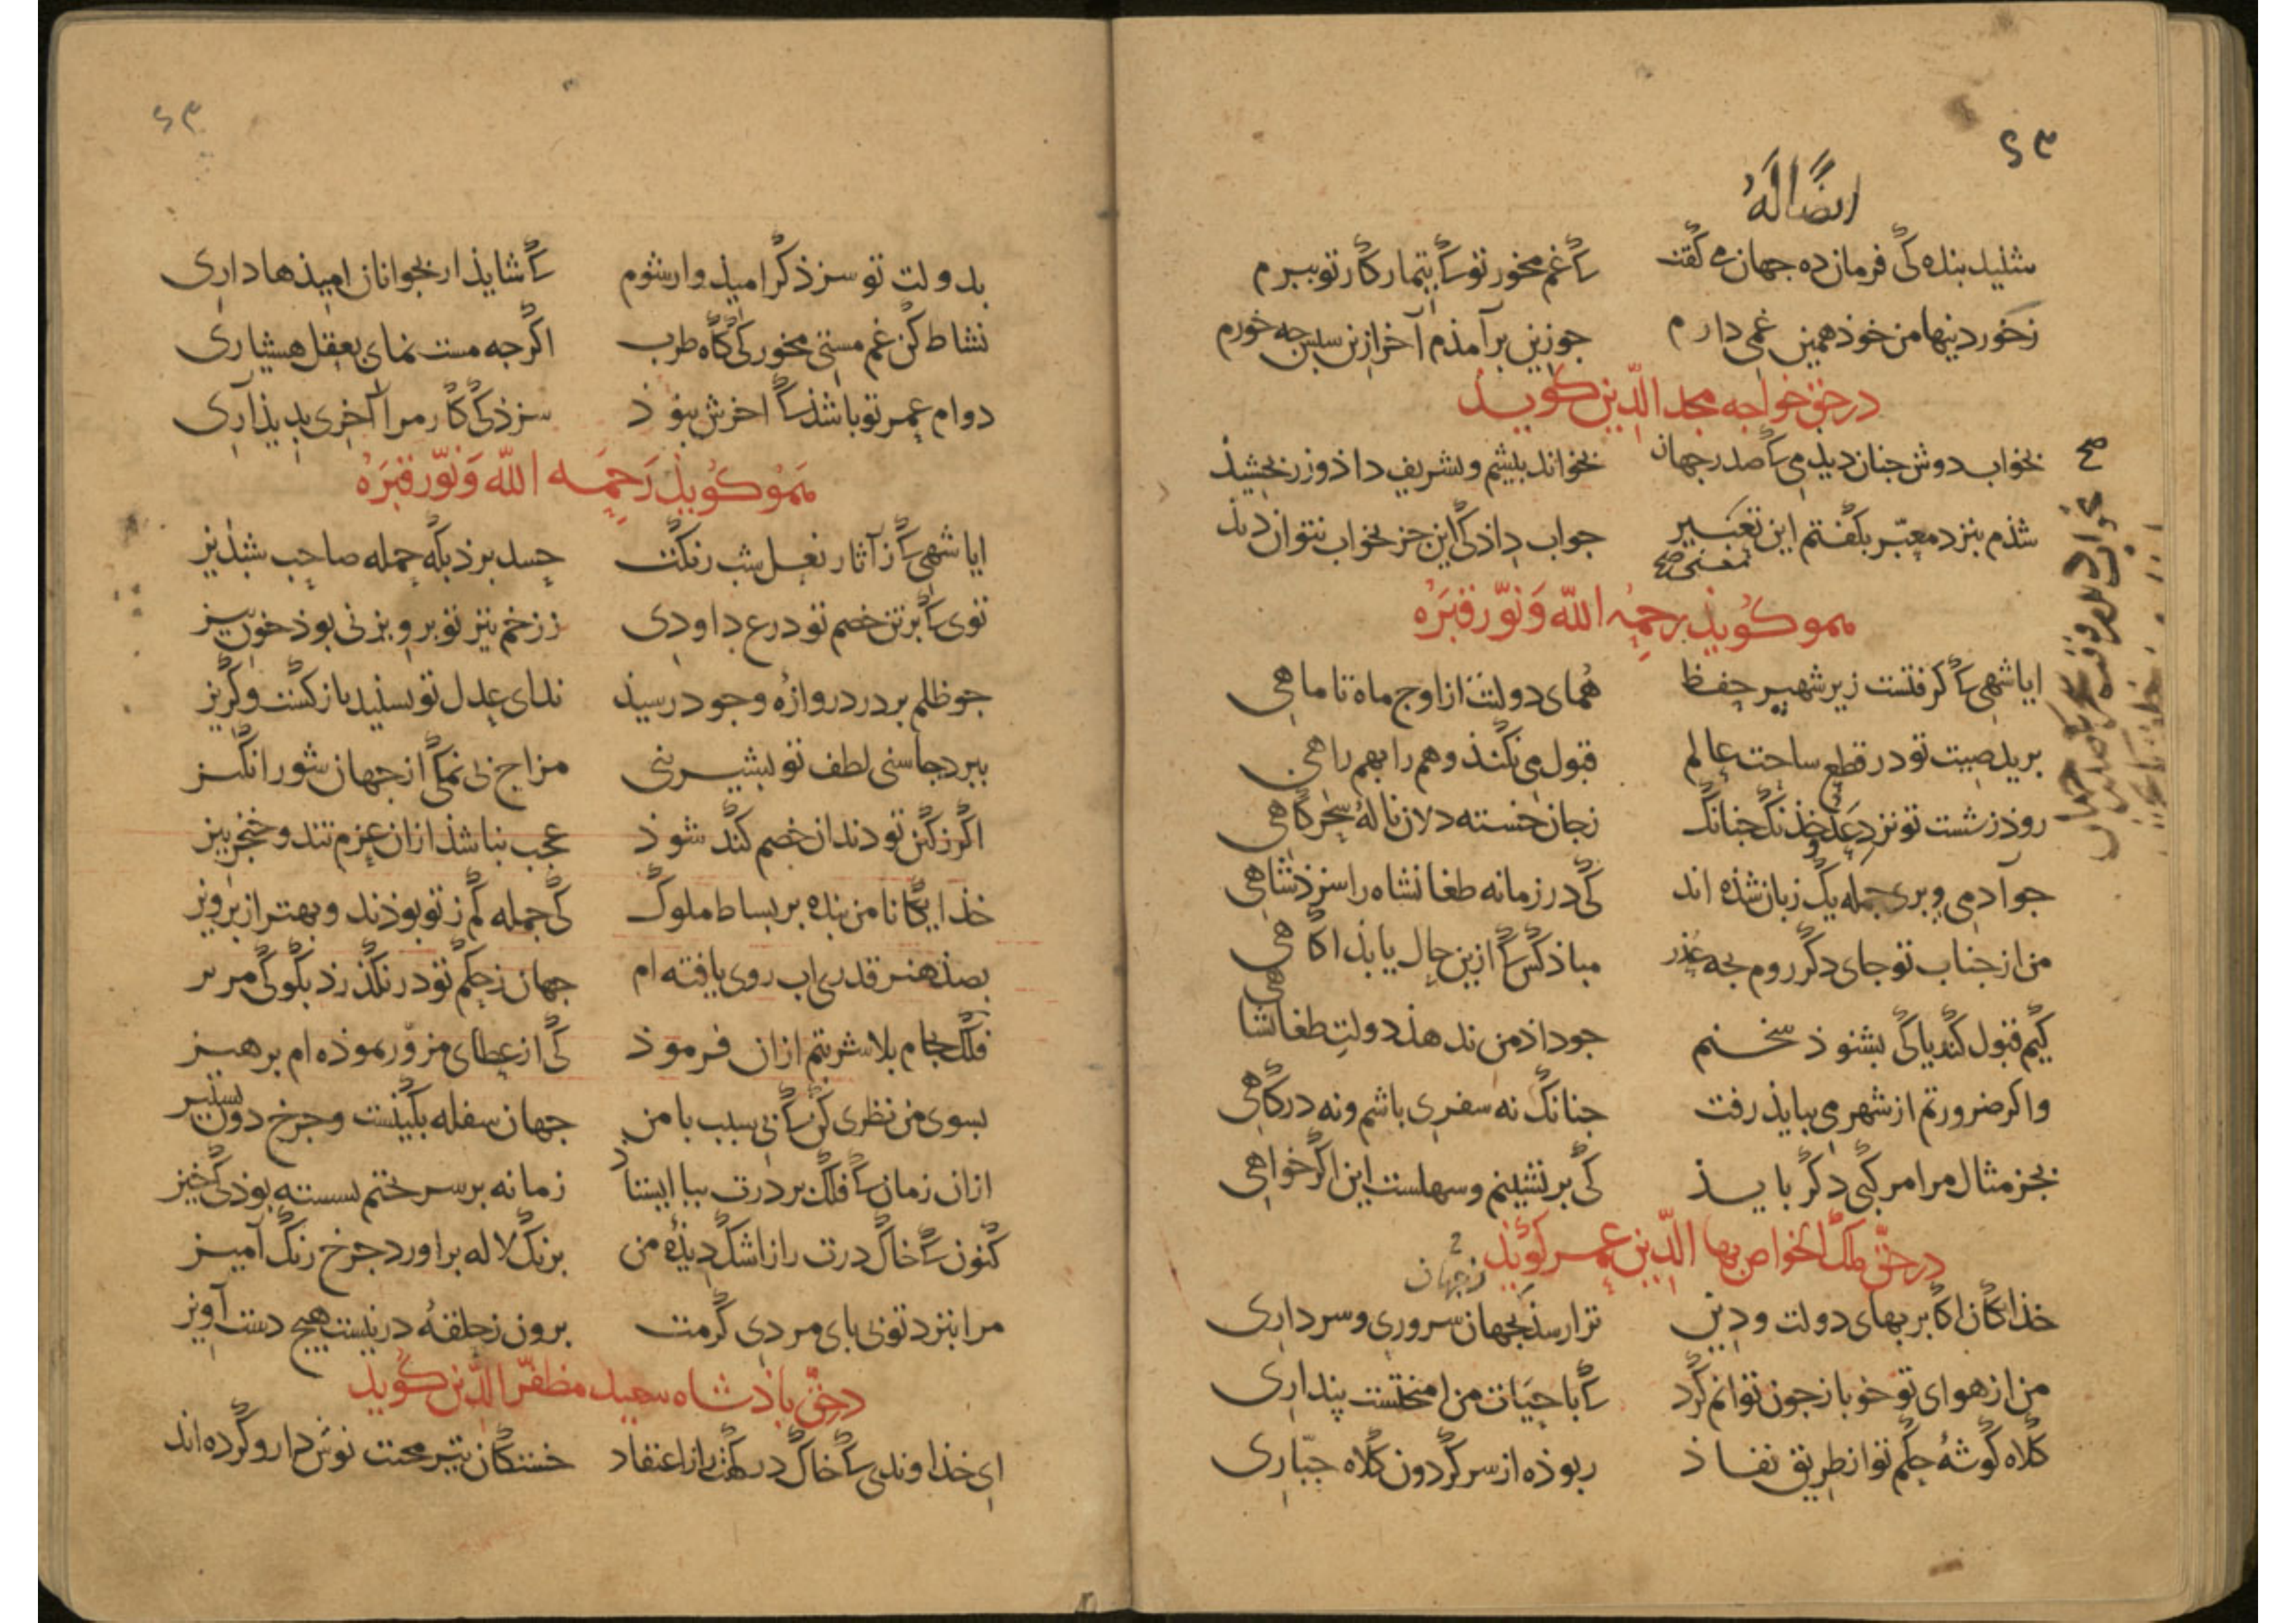 ۶۳
ایضًا لَهُ
شنید بنده کی فرمان ده جهان می گفت کی غم مخور تو کی تیمار کار تو ببرم
زخورد نیها من خود همین غمی دارم جو زین برآمذم آخر ازین سپس جه خورم
در حق خواجه مجد الدّین کوید
بخواب دوش جنان دیذمی کی صدر جهان بخواند بیشم و تشریف داذ و زر بخشیذ
شذم بنزد معبّر بکفتم این تعبیر جواب داذ کی این جز بخواب نتوان دیذ
معنی صح
صح
هموکویذ رحمه الله وَنوّر قبرَهُ
ایا شهی کی کرفتست زیر شهپر حفظ همای دولتت از اوج ماه تا ماهی
برید صیت تو در قطع ساحت عالم قبول می نکند وهم را بهم راهی
روذ زشست تو نزد عدو خذنک جنانک زجان خسته دلان نالهٔ سحرکاهی
جو آدمی و بری جمله یک زبان شذه اند کی در زمانه طغانشاه را سزذ شاهی
من از جناب تو جای دکر روم بجه عذر مباذ کس کی ازین حال یابذ آکاهی
کیم قبول کند یا کی بشنوذ سخنم جو داذ من ندهذ دولت طغانشاهی
واکر ضرورتم از شهر می ببایذ رفت جنانک نه سفری باشم و نه درکاهی
بجز مثال مرا مرکبی دکر بایذ کی برنشینم و سهلست این اکر خواهی
در حقّ ملک الخواص بها الدّین عمر کویذ
زجهان
خذایکان اکابر بهای دولت و دین ترا رسذ بجهان سروری و سرداری
من از هوای تو خو باز جون توانم کرد کی با حیات من آمیختست پنداری
کلاه کوشهٔ حکم تو از طریق نفاذ ربوذه از سر کردون کلاه جبّاری
۶۳
بدولت تو سزذ کر امیذوار شوم کی شایذ ار بجوانان امیذها داری
نشاط کن غم مستی مخور کی کاه طرب اکرجه مست نمای بعقل هشیاری
دوام عمر تو باشذ کی اخرش نبوذ سزذ کی کار مرا آخری بدیذ آری
هَموکویذ رَحمَه الله وَنوّر قبرَهُ
ایا شهی کی ز آثار نعل شب رنکت حسد برد بکه حمله صاحب شبدیز
توی کی بر تن خصم تو درع داودی ز زخم تیر تو برویزنی بوذ خون ریز
جو ظلم بر در دروازهٔ وجود رسیذ ندای عدل تو بشنید بازکشت و کریز
ببرد جاشنی لطف تو بشیرینی مزاج بی نمکی از جهان شورانکیز
اکر زکین تو دندان خصم کند شوذ عجب نباشذ ازان عزم تند و خنجر تیز
خذایکانا من بنده بر بساط ملوک کی جمله کم ز تو بوذند و بهتر از برویز
بصذ هنر قدری اب روی یافته ام جهان زحکم تو در نکذرذ بکو کی مریز
فلک بجام بلا شربتم ازان فرموذ کی از عطای مزوّر نموذه ام برهیز
بسوی من نظری کن کی بی سبب با من جهان سفله بکینست و جرخ دون بستیز
ازان زمان کی فلک بر درت ببا ایستاذ زمانه بر سر ختم نشسته بوذ کی خیز
کنون کی خاک درت را ز اشک دیذهٔ من برنک لاله براورد جرخ رنک آمیز
مرا بنزد تو بی بای مردی کرمت برون زحلقهٔ در نیست هیچ دست آویز
در حقّ باذشاه سعید مظفّر الدّین کوید
ای خذاوندی کی خاک درکهت را ز اعتقاد خستکان تیر محنت نوش دارو کرده اند